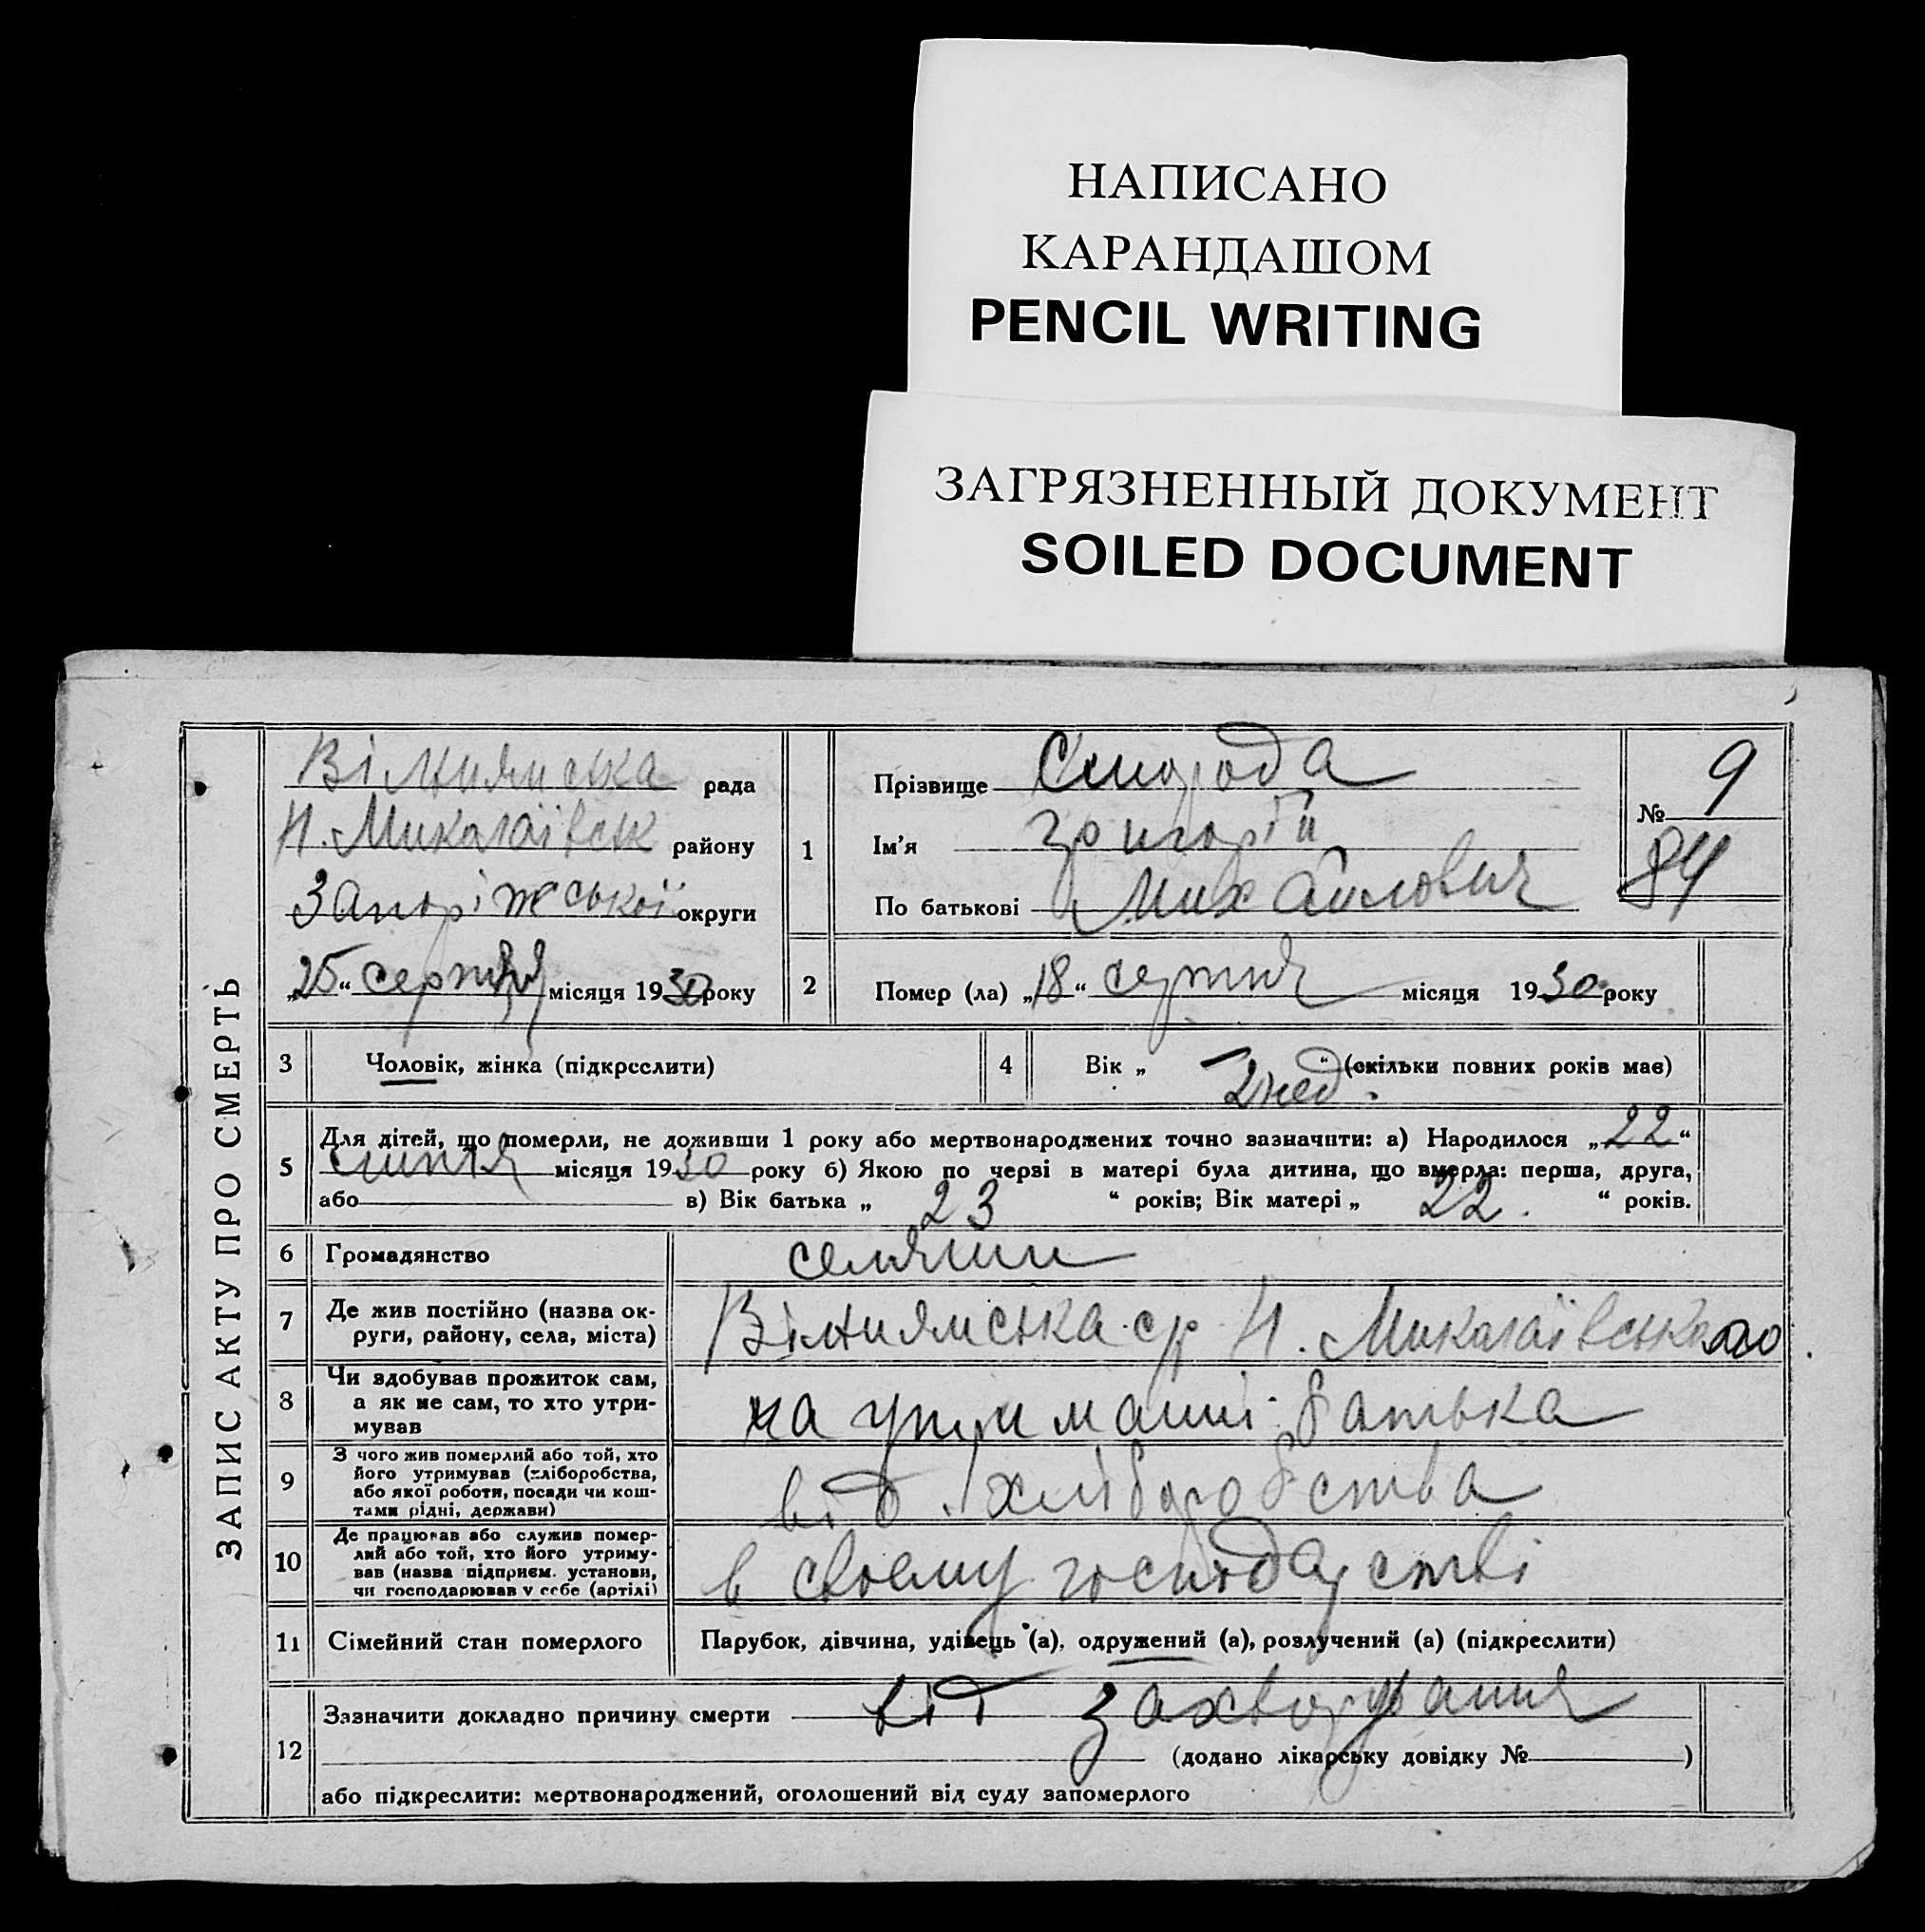 НАПИСАНО
КАРАНДАШОМ
PENCIL WRITING
ЗАГРЯЗНЕННЫЙ ДОКУМЕНТ
SOILED DOCUMENT
ЗАПИС АКТУ ПРО СМЕРТЬ
рада
Н. Миколаївськ району
Запоріжської округи
„25“ серпня місяця 1930 року
1
Прізвище
Ім'я Григорій
По батькові Михайлович
№ 9
84
2
Помер (ла) „18“ серпня місяця 1930 року
3 Чоловік, жінка (підкреслити)
4 Вік „ 2 нед. “ (скільки повних років має)
5 Для дітей, що померли, не доживши 1 року або мертвонароджених точно зазначити: а) Народилося „22“
липня місяця 1930 року б) Якою по черзі в матері була дитина, що вмерла: перша, друга,
або в) Вік батька „ 23 “ років; Вік матері „ 22. “ років.
6 Громадянство селянин
7 Де жив постійно (назва ок-
руги, району, села, міста)
ср Н. Миколаївського
8 Чи здобував прожиток сам,
а як не сам, то хто утри-
мував
на утриманні батька
9 З чого жив померлий або той, хто
його утримував (хліборобства,
або якої роботи, посади чи кош-
тами рідні, держави)
від хліборобства
10 Де працював або служив помер-
лий або той, хто його утриму-
вав (назва підприєм. установи,
чи господарював у себе (артілі)
в своему господарстві
11 Сімейний стан померлого
Парубок, дівчина, удівець (а), одружений (а), розлучений (а) (підкреслити)
12 Зазначити докладно причину смерти від захворування
(додано лікарську довідку № )
або підкреслити: мертвонароджений, оголошений від суду запомерлого